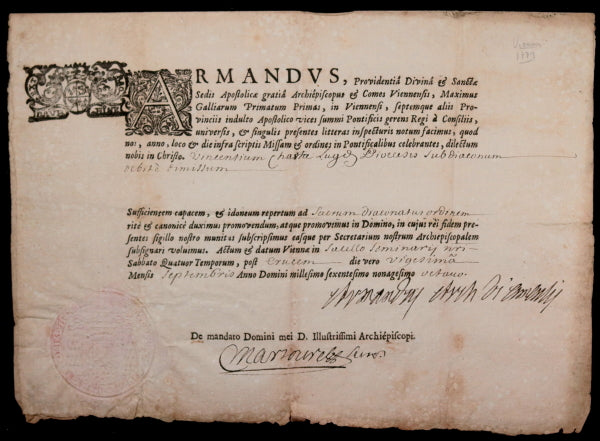 Vienne
ARMANDVS, Providentiâ Divinâ & Sanctæ
Sedis Apostolicæ gratiâ Archiepiscopus & Comes Viennensis, Maximus
Galliarum Primatum Primas, in Viennensi, septemque aliis Pro-
vinciis indulto Apostolico vices summi Pontificis gerens Regi à Consiliis,
universis, & singulis presentes litteras inspecturis notum facimus, quod
nos, anno, loco & die infra scriptis Missam & ordines in Pontificalibus celebrantes, dilectum
nobis in Christo. Vincentium Lugd Diocesis Subdiaconum
debite dimissum
Sufficientem capacem, & idoneum repertum ad Sacrum diaconatus ordinem
ritè & canonicè duximus promovendum, atque promovimus in Domino, in cujus rei fidem pre-
sentes sigillo nostro munitas subscripsimus easque per Secretarium nostrum Archiepiscopalem
subsignari voluimus. Actum & datum Viennæ in Sacello Seminarij nri
Sabbato Quatuor Temporum, post Crucem die vero vigesimâ
Mensis Septembris Anno Domini millesimo sexentesimo nonagesimo octavo.
Armandus Arch Viennensis
De mandato Domini mei D. Illustrissimi Archiepiscopi.